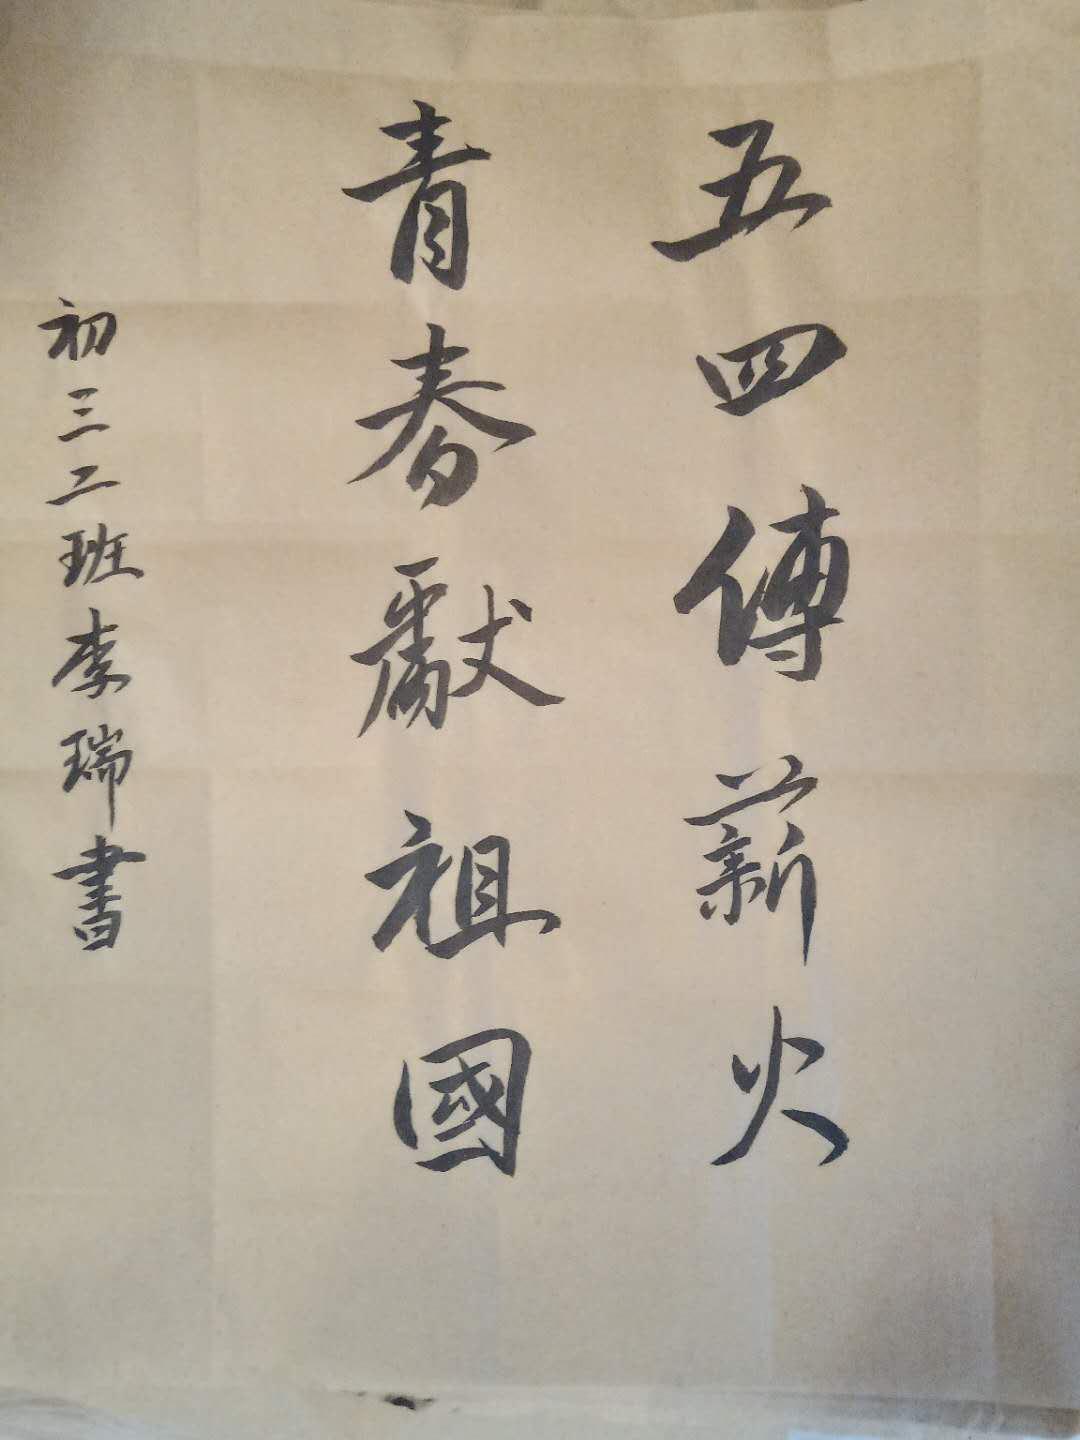 五四傳薪火
青春獻祖國
初三二班李瑞書